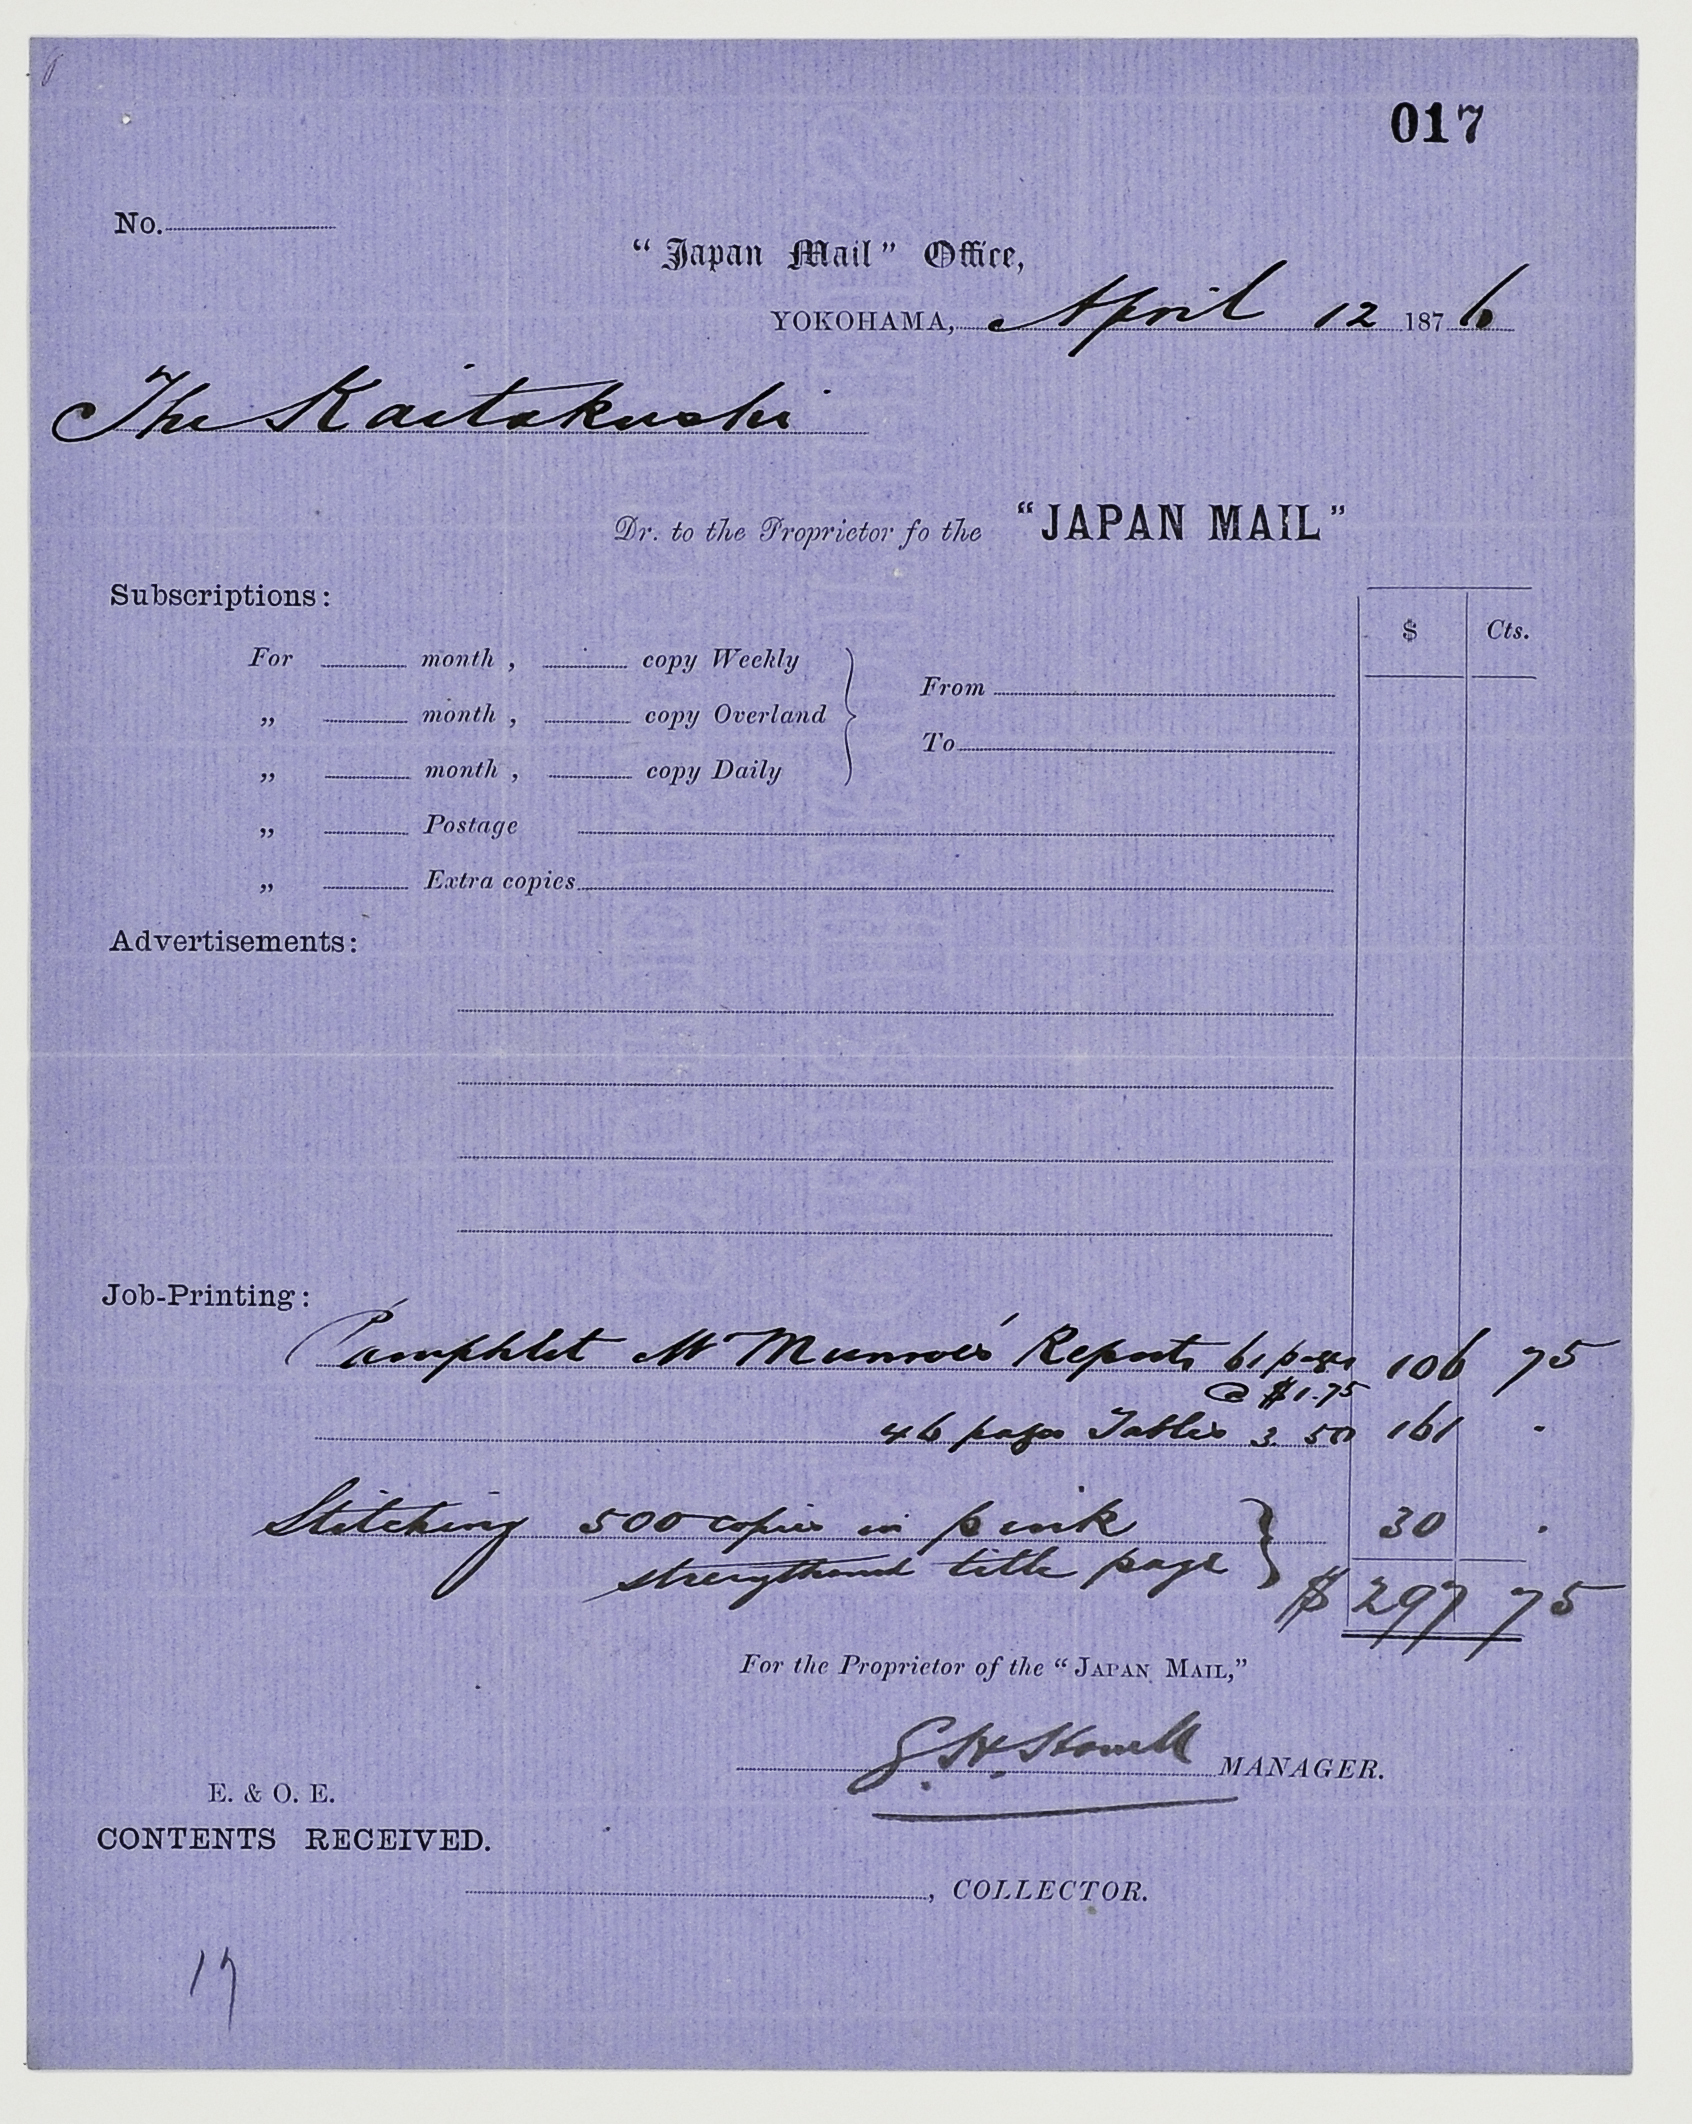 017
No.
“Japan Mail” Office,
YOKOHAMA, April 12 1876
The Kaitakushi
Dr. to the Proprietor fo the “JAPAN MAIL”
Subscriptions:
$ Cts.
For month, copy Weekly
„ month, copy Overland
„ month, copy Daily
From
To
„ Postage
„ Extra copies
Advertisements:
Job-Printing:
Pamphlet Mr Munroe's Reports 61 pages 106 75
@ $1.75
46 pages Tables 3.50 161 .
Stitching 500 copies in pink 30 .
strengthened title page
$ 297 75
For the Proprietor of the “JAPAN MAIL,”
MANAGER.
E. & O. E.
CONTENTS RECEIVED.
, COLLECTOR.
17